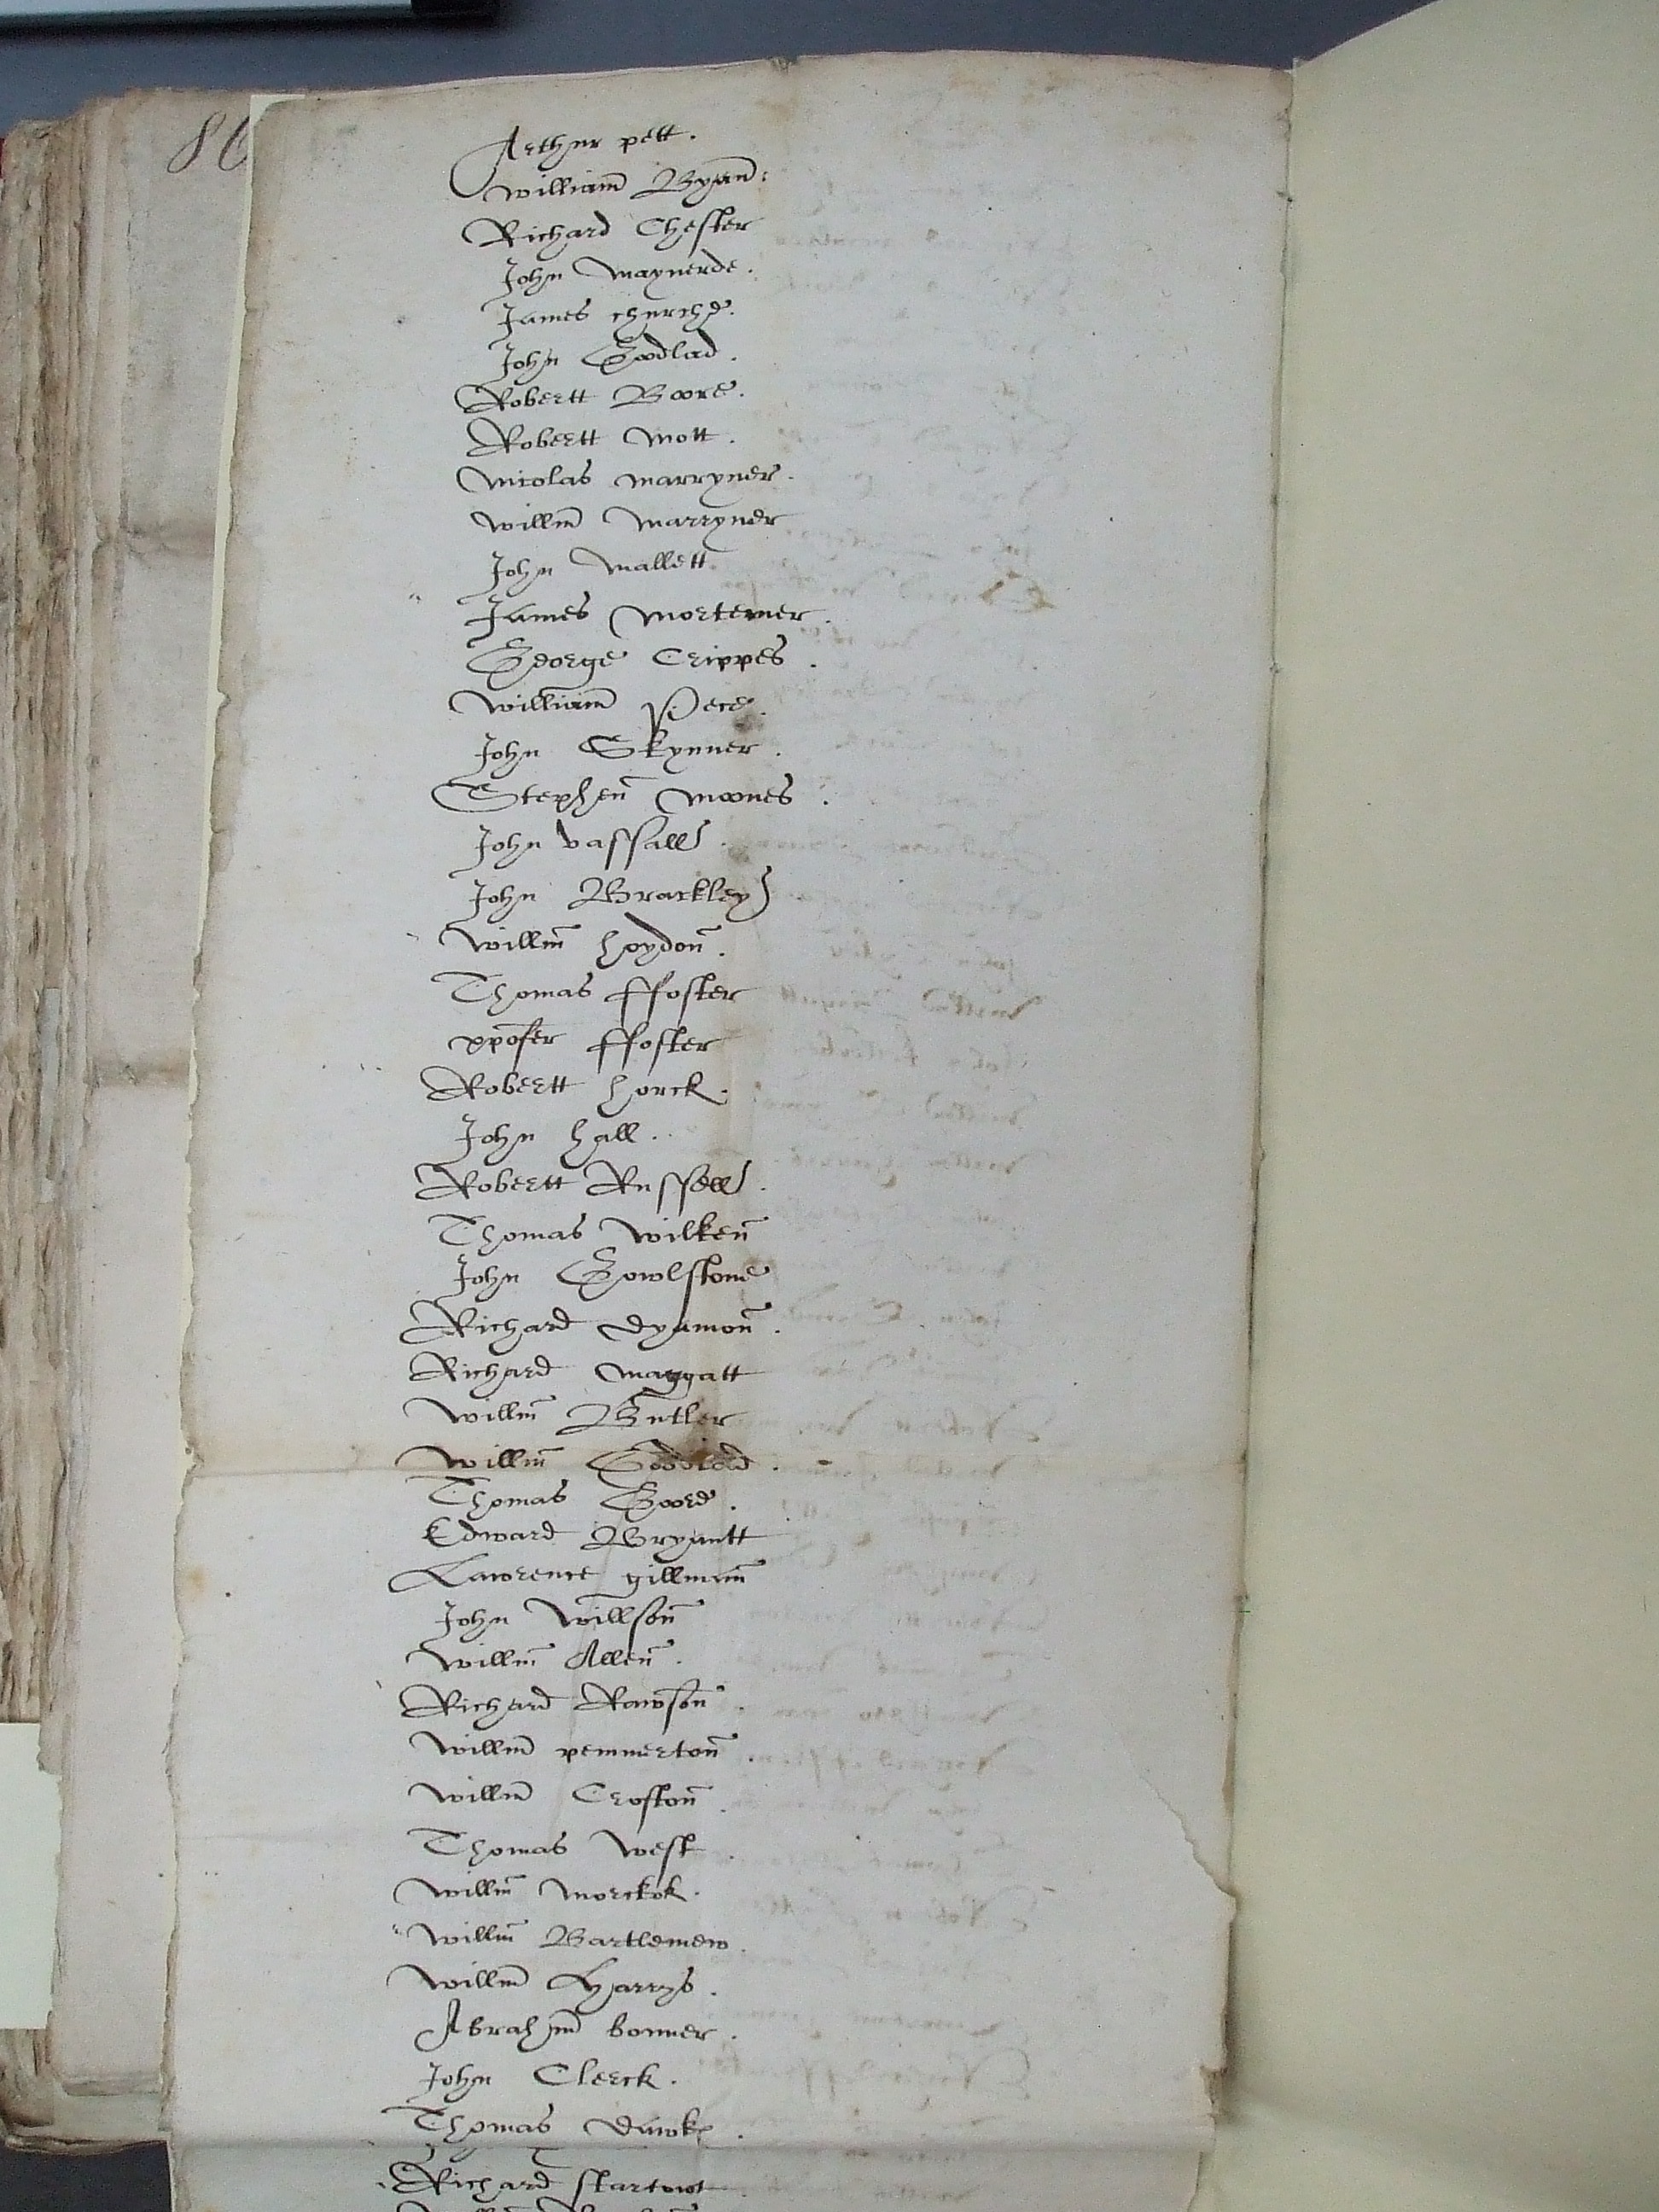 86
Arthur pett.
william Byam:
Richard Chester
John maynerde.
James churche.
John Goodlad.
Robertt Boore.
Robertt mott.
nicolas marryner.
willm marryner
John mallett.
James mortemer.
George Crippes.
william Pece.
John Skynner.
Stephen moones.
John vassall.
John Brackley
willm hoydon.
Thomas ffoster
xpofer ffoster
Robertt horck.
John hall.
Robertt Russell.
Thomas wilken
John Gowlstone
Richard dyamon.
Richard maggatt
willm Butler
willm Goodlad.
Thomas Goore.
Edward Bryantt
Lawrence gillman
John willson
willm Allen.
Richard Rawson.
willm pemmerton.
willm Croston.
Thomas west.
willm morckok.
willm Bartlemew.
willm Harrys.
Abraham bonner.
John Clerck.
Thomas dawkes.
Richard startowt